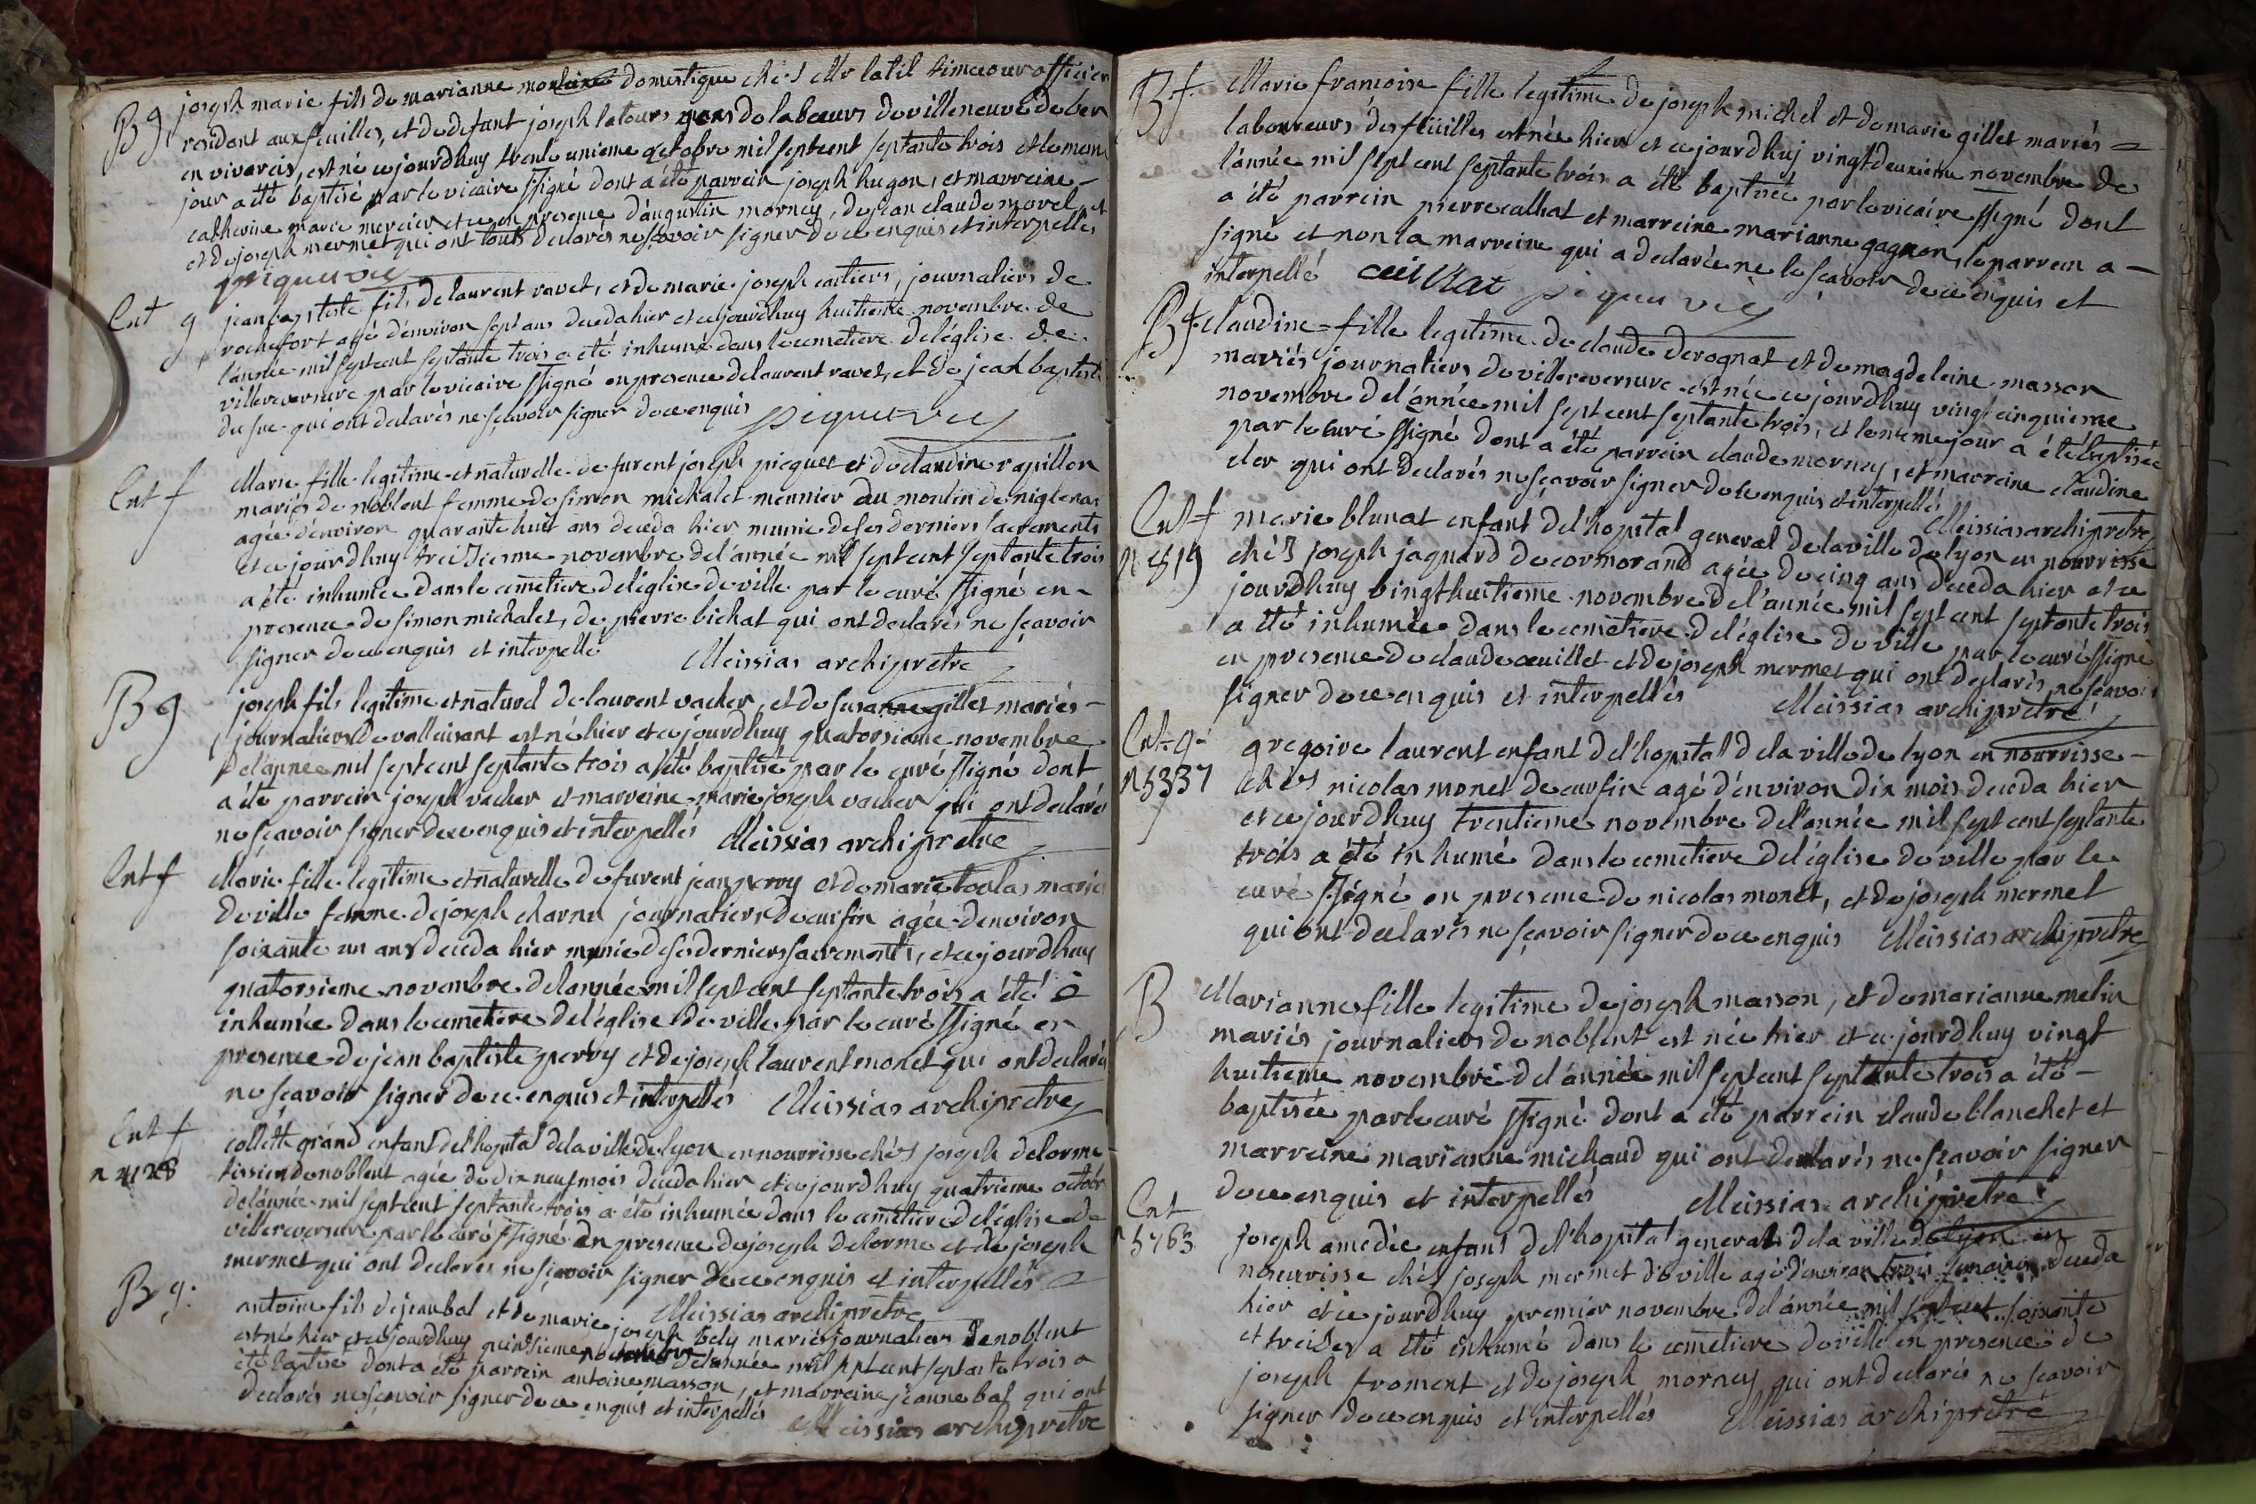 B g
joseph marie fils de marianne domestique chés Mr latil officier
residant aux feuilles, et de defunt joseph latours de labœurs de villeneuve de ber
en vivarais, est né ce jourdhuy trente unieme octobre mil sept cent septante trois et le meme
jour a été baptisé par le vicaire ssigné dont a été parrein joseph hugon, et marreine
catherine marie mercier et ce en presence d'augustin mornay, de jean claude morel, et
et de joseph mermet qui ont touts declarés ne sçavoir signer de ce enquis et interpellés
piquet vic
Ent g
jean baptiste fils de laurent ravet, et de marie joseph cartiers, journaliers de
rochefort agé d'environ sept ans deceda hier et ce jourdhuy huitieme novembre de
l'année mil sept cent septante trois a été inhumé dans le cemetiere de l'église de
villereversure par le vicaire ssigné en presence de laurent ravet, et de jean baptiste
du suc qui ont declarés ne sçavoir signer de ce enquis piquet vic
Ent f
Marie fille legitime et naturelle de furent joseph picquet et de claudine rapillon
mariés de noblent femme de simon michalet mennier du moulin de niglenas
agée d'environ quarante huit ans deceda hier munie de ses derniers sacrements
et ce jourdhuy treisieme novembre de l'année mil sept cent septante trois
a été inhumée dans le cemetiere de l'église de ville par le curé ssigné en
presence de simon michalet, de pierre bichat qui ont declarés ne sçavoir
signer de ce enquis et interpellé Meissias archiprêtre
B g
joseph fils legitime et naturel de laurent vacher, et de susanne gillet mariés
journaliers de valleisant est né hier et ce jourdhuy quatorsieme novembre
de l'année mil sept cent septante trois a été baptisé par le curé ssigné dont
a été parrein joseph vacher et marreine marie joseph vacher qui ont declarés
ne sçavoir signer de ce enquis et interpellés Meissias archiprêtre
Ent f
Marie fille legitime et naturelle de furent jean perry et de marie toulas mariés
de ville femme de joseph charnu journaliers de curfin agée d'environ
soixante un ans deceda hier munie de ses derniers sacrements, et ce jourdhuy
quatorsieme novembre de l'année mil sept cent septante trois a été
inhumée dans le cemetiere de l'église de ville par le curé ssigné en
presence de jean baptiste perry et de joseph laurent monet qui ont declarés
ne sçavoir signer de ce enquis et interpellés Meissias archiprêtre
Ent f
n 4128
collette grand enfant de l'hopital de la ville de lyon en nourrisse chés joseph delorme
tissier de noblent agée de dix neuf mois deceda hier et ce jourdhuy quatrieme octobre
de l'année mil sept cent septante trois a été inhumée dans le cemetiere de l'église de
villereversure par le curé ssigné en presence de joseph delorme et de joseph
mermet qui ont declarés ne sçavoir signer de ce enquis et interpellés
Meissias archiprêtre
B g.
antoine fils de jean bal et de marie joseph bely mariés journaliers de noblent
est né hier et ce jourdhuy quinsieme novembre de l'année mil sept cent septante trois a
été baptisé dont a été parrein antoine masson, et marreine jeanne bal qui ont
declarés ne sçavoir signer de ce enquis et interpellés
Meissias archiprêtre
B f.
Marie francoise fille legitime de joseph michel et de marie gillet mariés
laboureurs des feüilles est née hier et ce jourd'huj vingt deuxieme novembre de
l'année mil sept cent septante trois a été baptisée par le vicaire ssigné dont
a été parrein pierre cuilhat et marreine marianne gagnon, le parrein a
signé et non la marreine qui a declarée ne le sçavoir de ce enquis et
interpellé cuilhat piquet vic
B f.
claudine fille legitime de claude derognat et de magdeleine masson
mariés journaliers de villereversure est née ce jourdhuy vingt cinquieme
novembre de l'année mil sept cent septante trois, et le même jour a été baptisée
par le curé ssigné dont a été parrein claude mornay, et marreine claudine
cler qui ont declarés ne sçavoir signer de ce enquis et interpellé
Meissias archiprêtre
Ent f
n 819
marie blunat enfant de l'hopital general de la ville de lyon en nourrisse
chéz joseph jaguard de cormorand agée de cinq ans deceda hier et ce
jourdhuy vingt huitieme novembre de l'année mil sept cent septante trois
a été inhumée dans le cemetiere de l'église de ville par le curé ssigné
en presence de claude œuillet et de joseph mermet qui ont declarés ne sçavoir
signer de ce enquis et interpellés Meissias archiprêtre
Ent g.
n 5337
gregoire laurent enfant de l'hopital de la ville de lyon en nourrisse
chés nicolas monet de curfin agé d'environ dix mois deceda hier
et ce jourdhuy trentieme novembre de l'année mil sept cent septante
trois a été inhumé dans le cemetiere de l'église de ville par le
curé ssigné en presence de nicolas monet, et de joseph mermet
qui ont declarés ne sçavoir signer de ce enquis Meissias archiprêtre
B
Marianne fille legitime de joseph masson, et de marianne melin
mariés journaliers de noblent est née hier et ce jourdhuy vingt
huitieme novembre de l'année mil sept cent septante trois a été
baptisée par le curé ssigné dont a été parrein claude blanchet et
marreine marianne michaud qui ont declarés ne sçavoir signer
de ce enquis et interpellés Meissias archiprêtre
Ent
n 5763
joseph amedée enfant de l'hopital general de la ville de lyon en
nourrisse chés joseph mermet de ville agé d'environ trois semaines deceda
hier et ce jourdhuy premier novembre de l'année mil sept cent soixante
et treises a été inhumé dans le cemetiere de ville en presence de
joseph froment et de joseph mornay qui ont declarés ne sçavoir
signer de ce enquis et interpellés Meissias archiprêtre